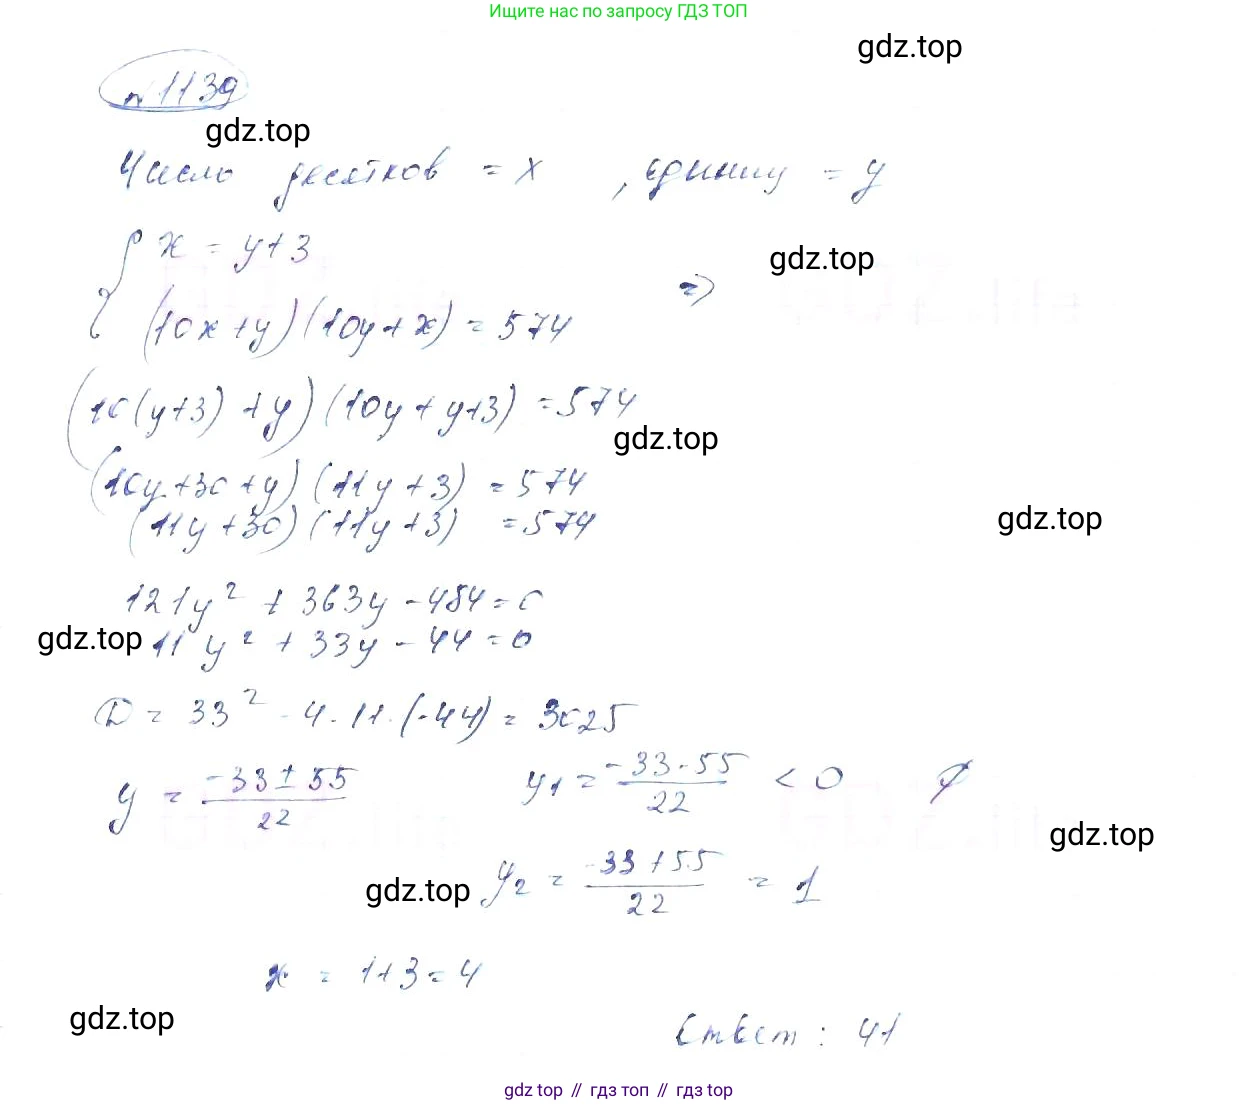 Ищите нас по запросу ГДЗ ТОП
gdz.top
№1139
gdz.top
Число десятков = x , единиц = y
{ x = y+3
gdz.top
(10x+y)(10y+x) = 574 =>
(10(y+3)+y)(10y+y+3) = 574
gdz.top
(10y+30+y)(11y+3) = 574
(11y+30)(11y+3) = 574
gdz.top
121y² + 363y - 484 = 0
gdz.top 11y² + 33y - 44 = 0
D = 33² - 4·11·(-44) = 3025
y = (-33 ± 55)/22 y₁ = (-33-55)/22 < 0 ∅
gdz.top
gdz.top y₂ = (-33+55)/22 = 1
x = 1+3 = 4
gdz.top
Ответ: 41
gdz top // гдз топ // гдз top